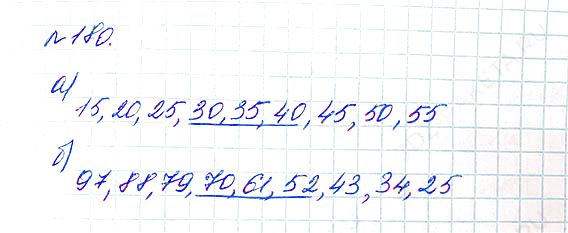 №180.
а)
15, 20, 25, 30, 35, 40, 45, 50, 55
б)
97, 88, 79, 70, 61, 52, 43, 34, 25